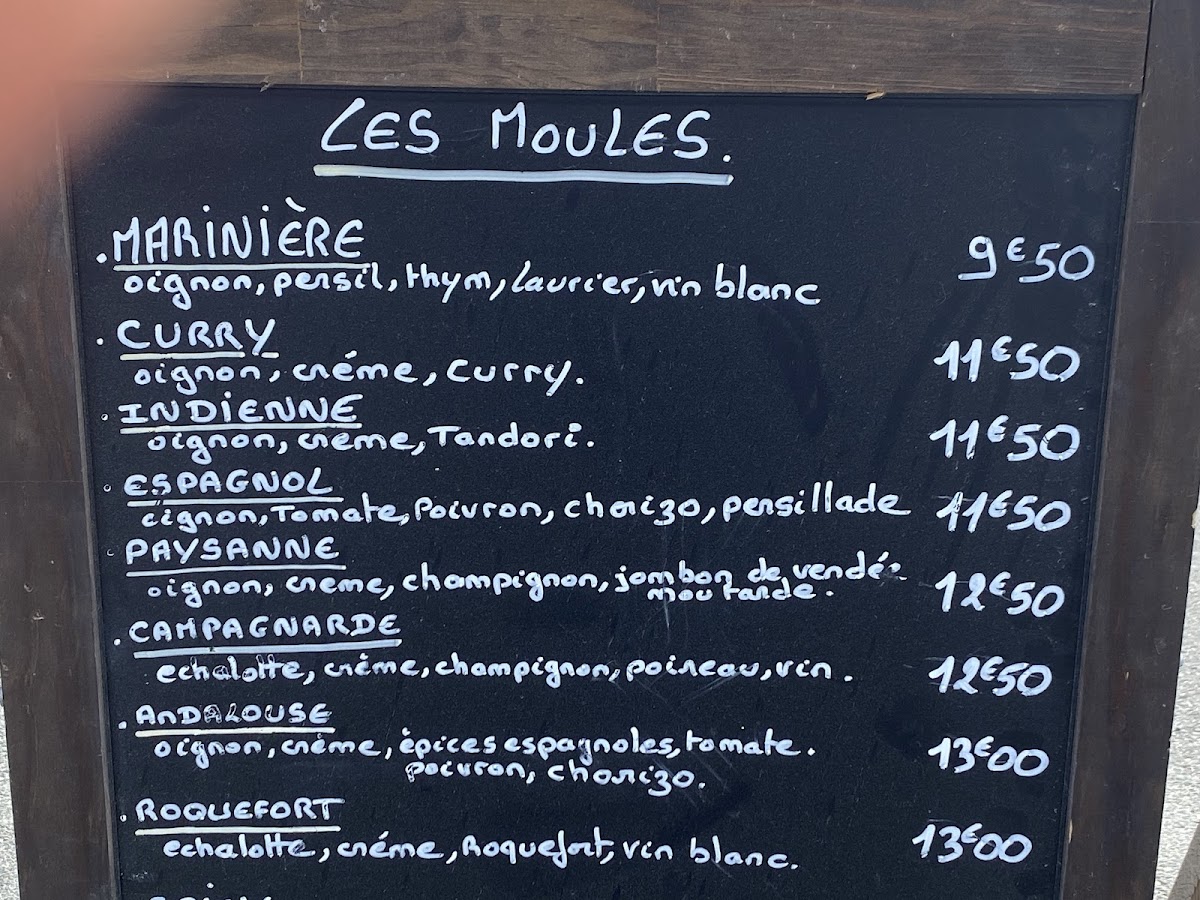 LES MOULES.
. MARINIÈRE 9€50
oignon, persil, thym, laurier, vin blanc
. CURRY
oignon, créme, Curry. 11€50
. INDIENNE
oignon, creme, Tandori. 11€50
. ESPAGNOL
oignon, Tomate, Poivron, chorizo, persillade 11€50
. PAYSANNE
oignon, creme, champignon, jambon de vendé. 12€50
moutarde.
. CAMPAGNARDE
echalotte, crème, champignon, poireau, vin. 12€50
. ANDALOUSE
oignon, crème, èpices espagnoles, tomate. 13€00
poivron, chorizo.
. ROQUEFORT
echalotte, créme, Roquefort, vin blanc. 13€00